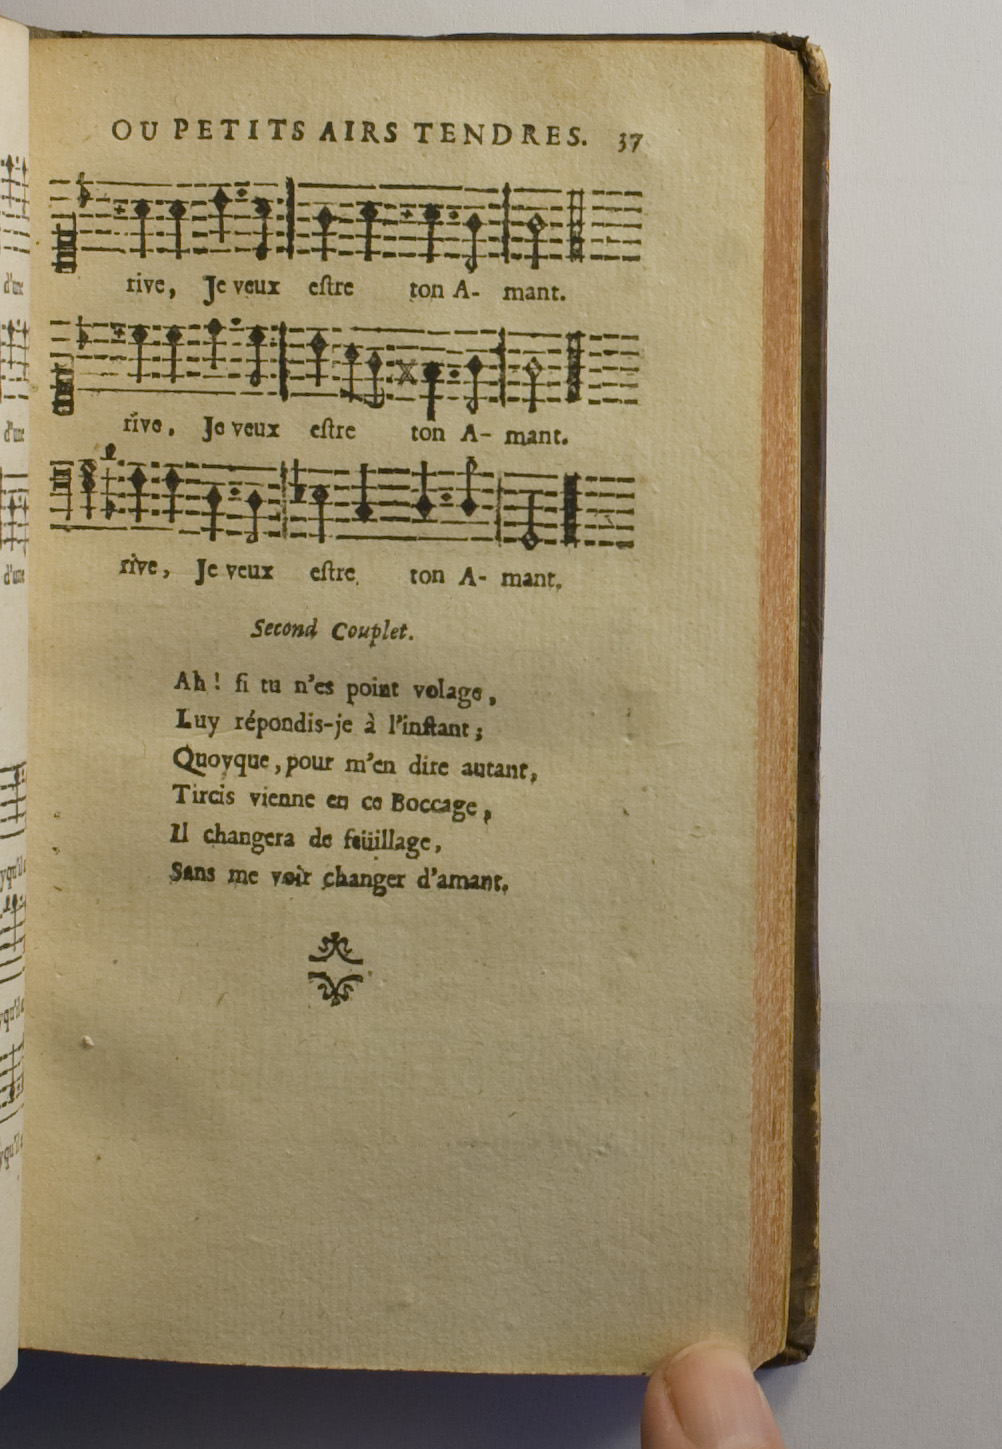 OU PETITS AIRS TENDRES. 37
rive, Je veux eſtre ton A- mant.
rive, Je veux eſtre ton A- mant.
rive, Je veux eſtre ton A- mant.
Second Couplet.
Ah! ſi tu n'es point volage,
Luy répondis-je à l'inſtant;
Quoyque, pour m'en dire autant,
Tircis vienne en ce Boccage,
Il changera de feüillage,
Sans me voir changer d'amant.
d'une
d'une
d'une
yqu'il a
yqu'il a
yqu'il a